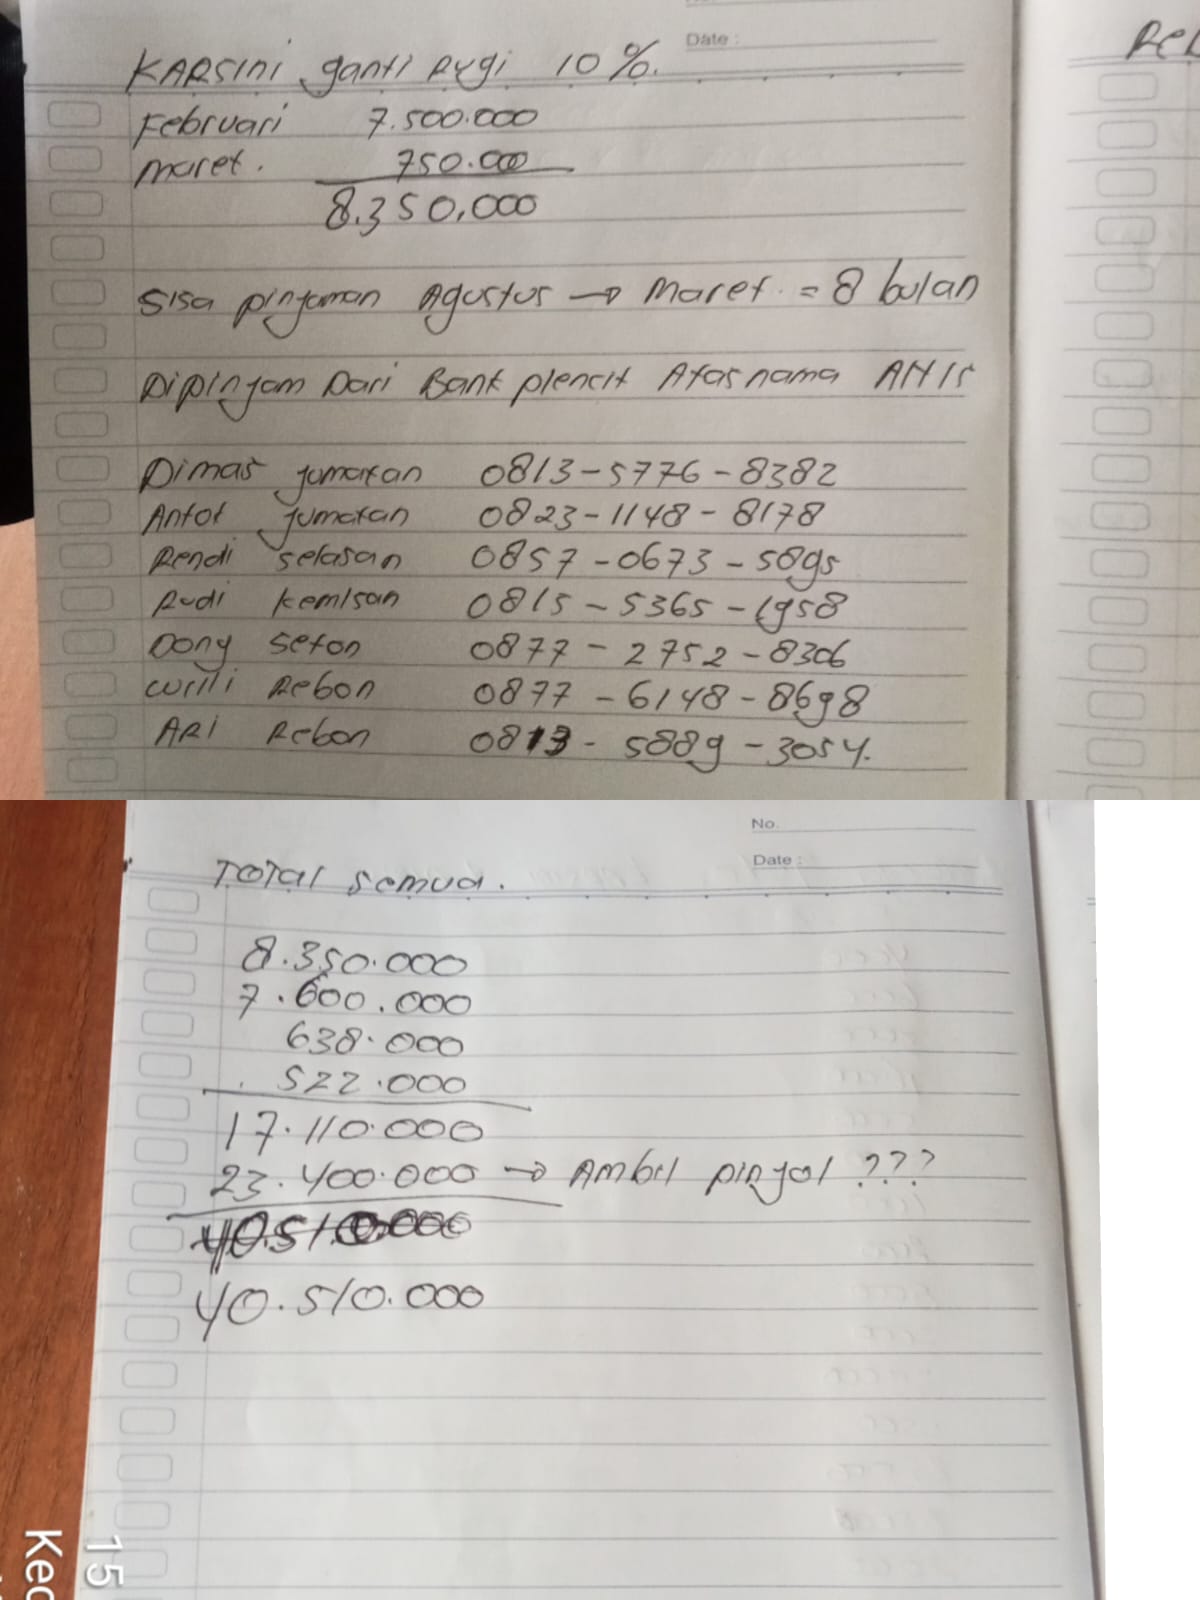 Date :
KARSINI ganti Rugi 10%.
Februari 7.500.000
maret. 750.000
8.350,000
Sisa pinjaman Agustus → maret. = 8 bulan
Dipinjam Dari Bank plencit Atas nama ANIS
Dimas jumatan 0813-5776-8382
Antot jumatan 0823-1148-8178
Rendi selasan 0857-0673-5895
Rudi kemisan 0815-5365-1958
Dony seton 0877-2752-8306
willi Rebon 0877-6148-8698
ARI Rebon 0813-5889-3054.
No.
Date :
TOTAL semua.
8.350.000
7.600.000
638.000
522.000
17.110.000
23.400.000 → Ambil pinjol ???
40.510.000
40.510.000
15
Kec